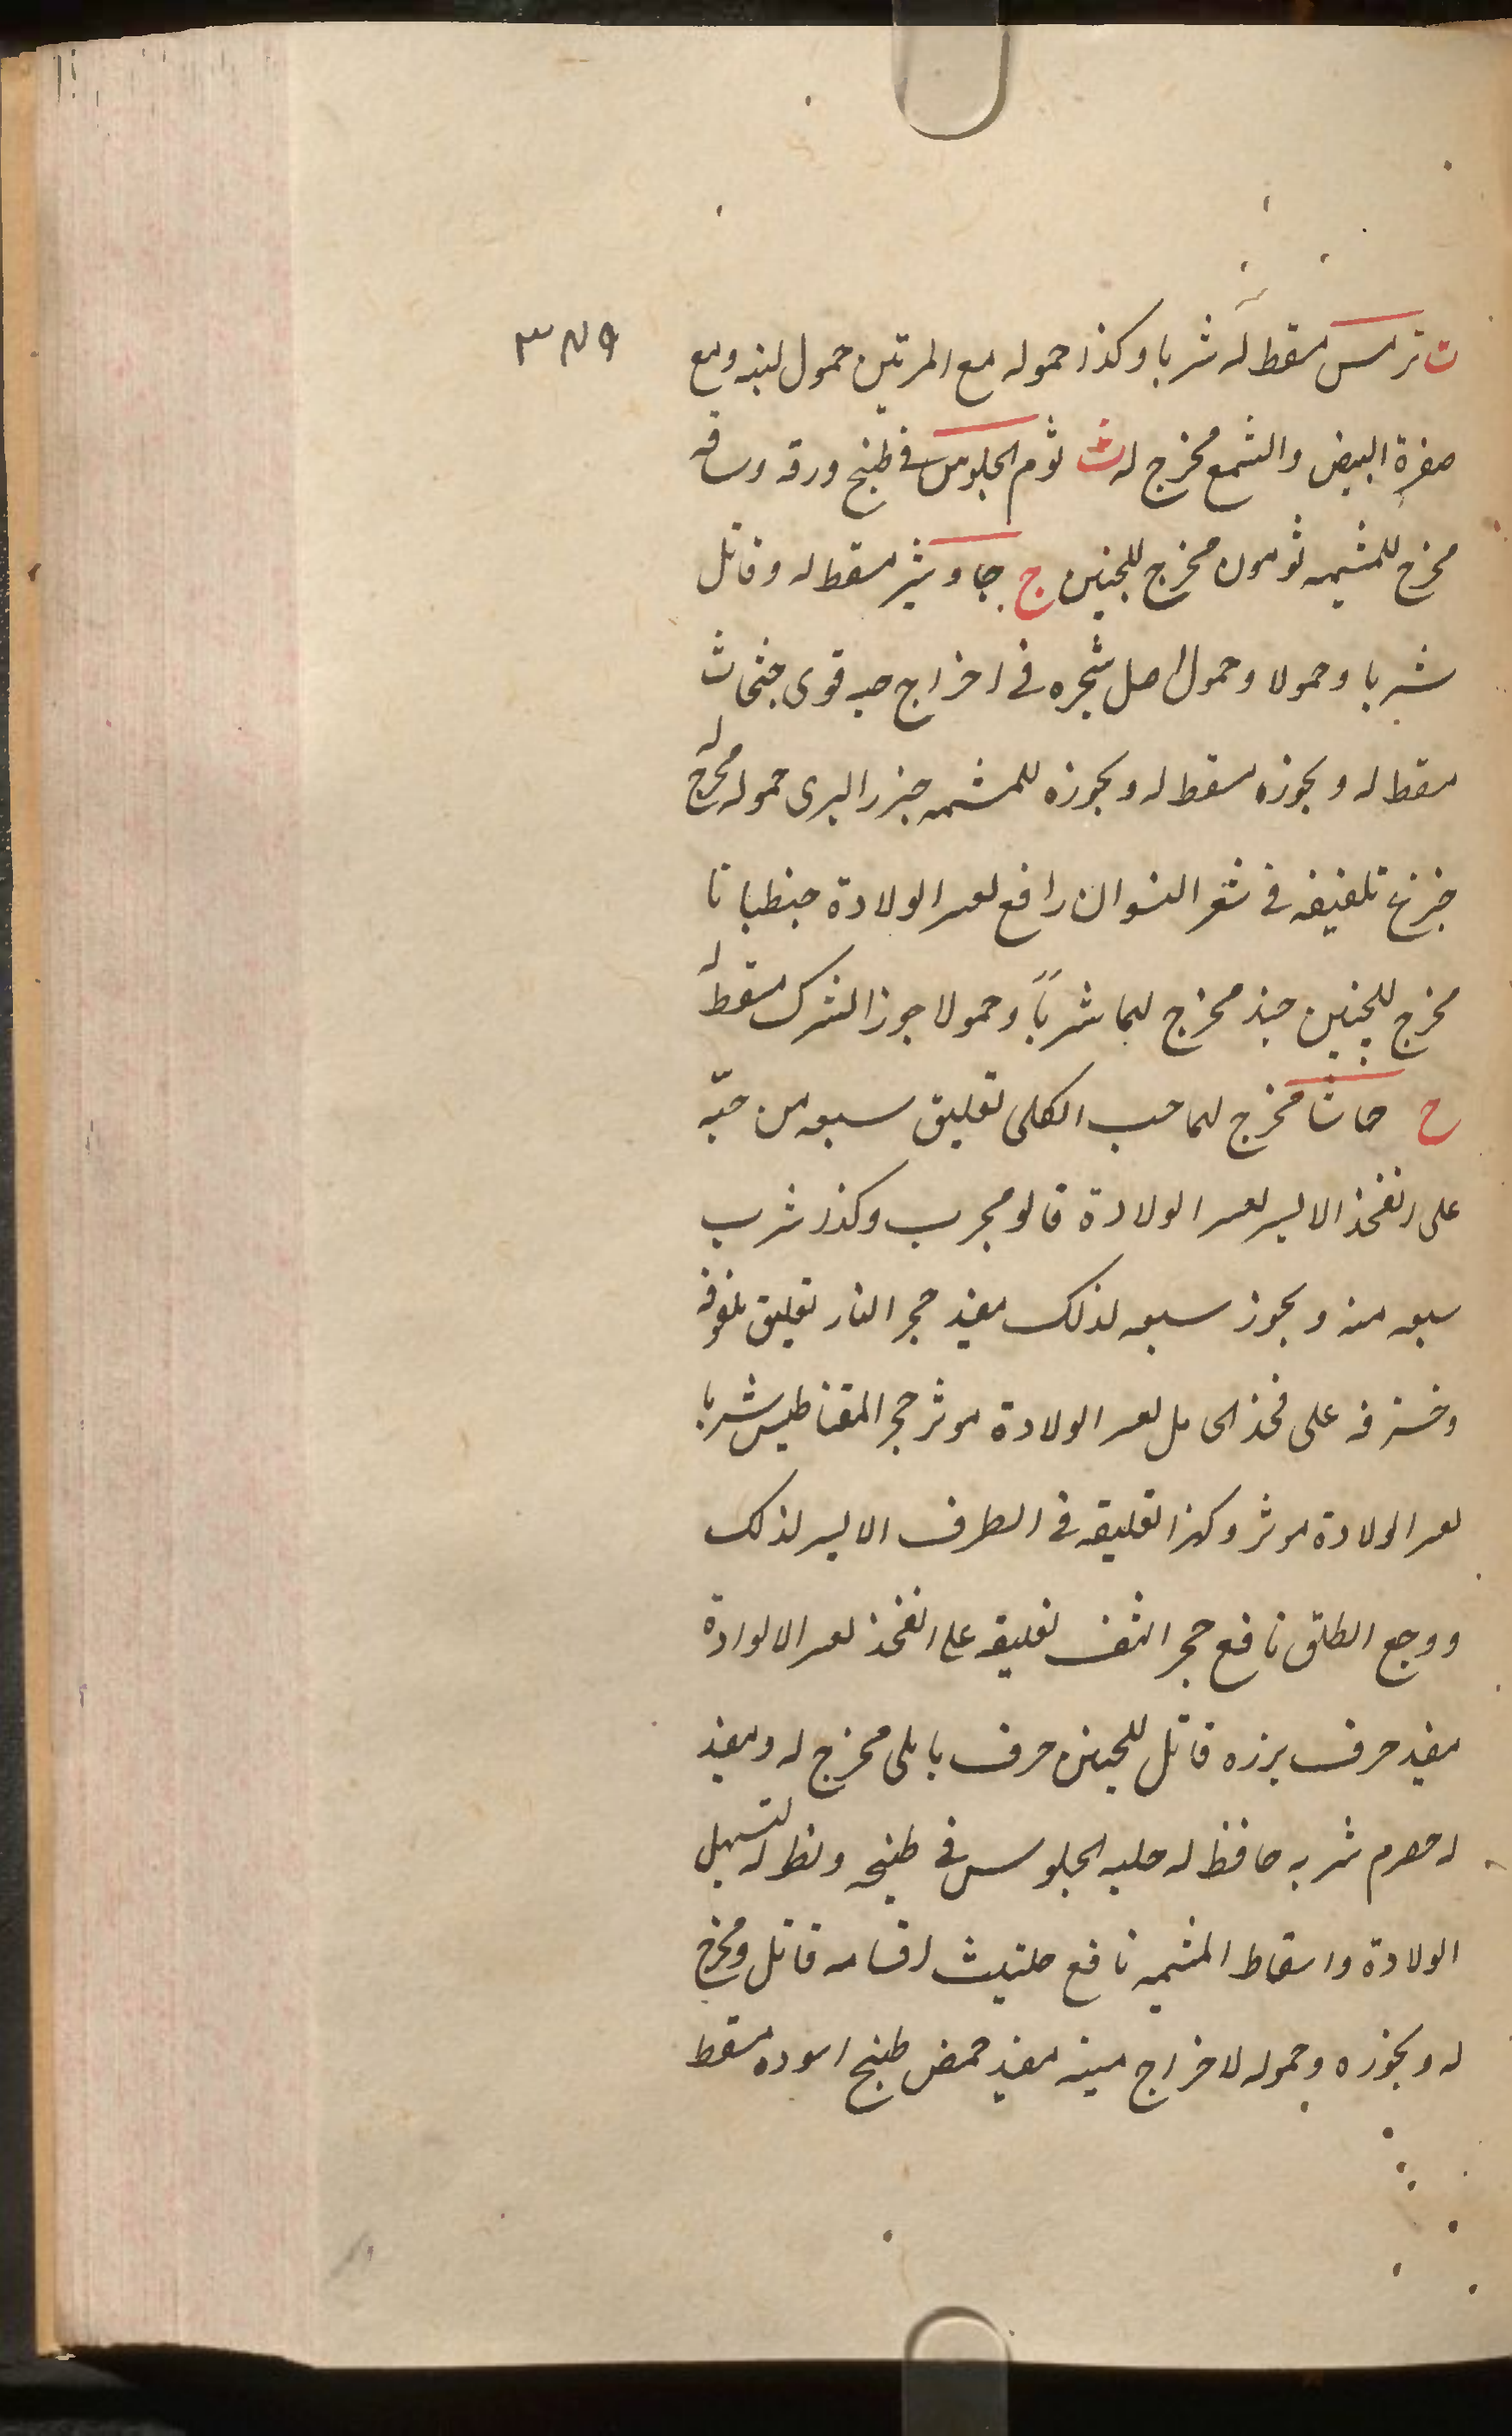 ٣٧٩
ت ترمس مسقط له شربا وكذا حموله مع المرتين حمول لبنه ومع
صفرة البيض والشمع مخرج له ث ثوم الجلوس فى طبخ ورقه وساقه
مخرج للمشيمه ثومون مخرج للجنين ج جاوشير مسقط له وقاتل
شربا وحمولا وحمول اصل شجره فى اخراج حيه قوى جثجاث
مسقط له وبخوزه مسقط له وبخوزه للمشمه جزر البرى حموله مخرج له
جزع تلفيفه فى شعر النسوان رافع لعسر الولادة جنطيانا
مخرج للجنين جند مخرج لهما شرباً وحمولا جوز الشرك مسقط له
ح حاشا مخرج لهما حب الكلى تعليق سبعه من حبّه
على الفخذ الايسر لعسر الولادة قالو مجرب وكذا شرب
سبعه منه وبخور سبعه لذلك مفيد حجر النار تعليق ملفوفه
وخسترفه على فخذ الحامل لعسر الولادة موثر حجر المقناطيس شربا
لعسر الولادة موثر وكذا تعليقه فى الطرف الايسر لذلك
ووجع الطلق نافع حجر الشف تعليقه على الفخذ لعسر الالوادة
مفيد حرف بزره قاتل للجنين حرف بابلى مخرج له ومفيد
له حصرم شربه حافظ له حلبه الجلوس فى طبخه ونطوله لتسهيل
الولادة واسقاط المشيمه نافع حلتيث اقسامه قاتل ومخرج
له وبخوره وحموله لاخراج ميته مفيد حمص طبخ اسوده مسقط